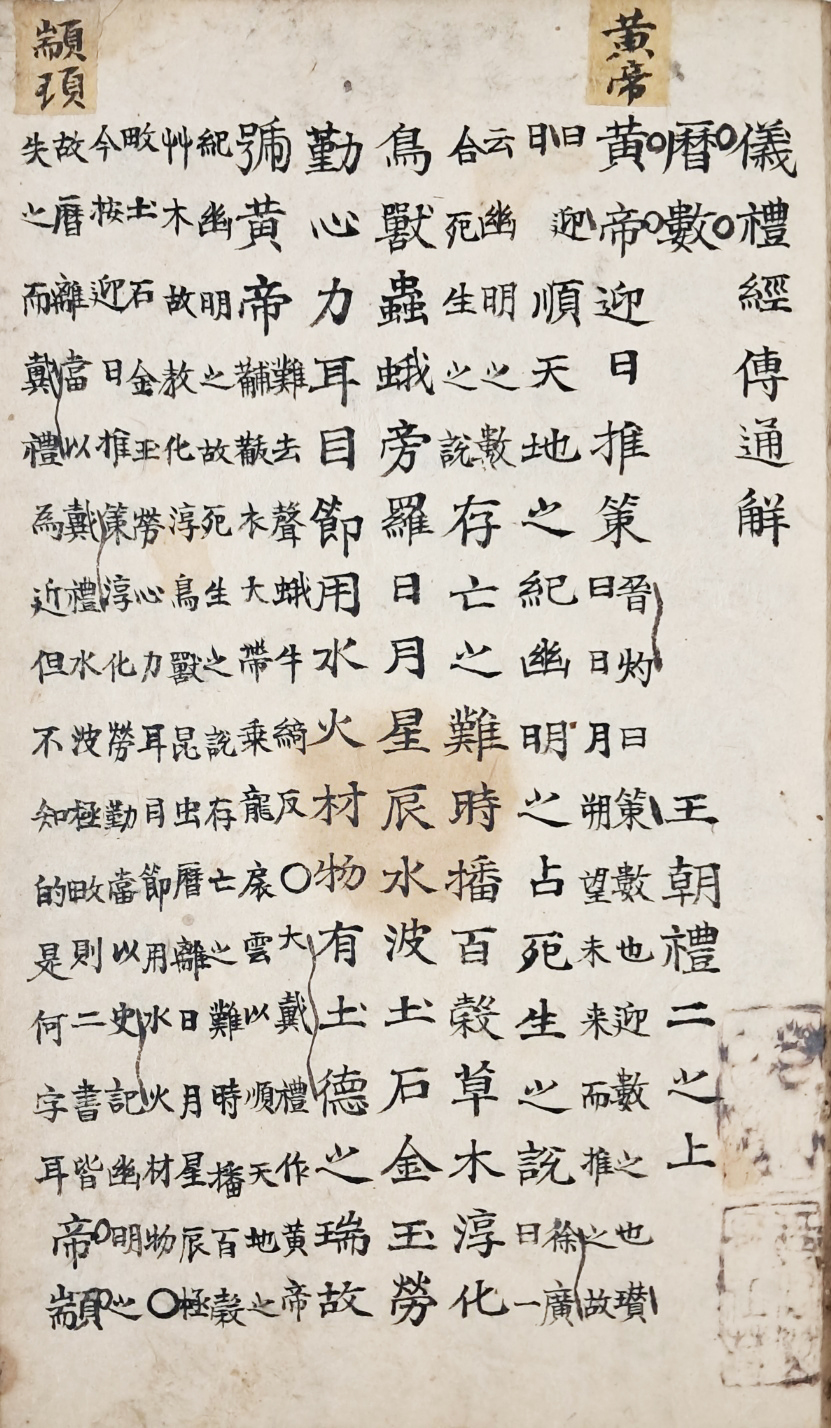 黃帝
儀禮經傳通解
曆數 王朝禮二之上
黃帝迎日推策
晉灼曰策數也迎數之也瓚
曰日月朔望未来而推之故
曰迎
日
順天地之紀幽明之占死生之說
徐廣
曰一
云幽明之數
合死生之說
存亡之難時播百穀草木淳化
鳥獸蟲蛾旁羅日月星辰水波土石金玉勞
勤心力耳目節用水火材物有土德之瑞故
號黃帝
難去聲蛾牛綺反○大戴禮作黃帝
黼黻衣大帶乘龍扆雲以順天地之
紀幽明之故死生之說存亡之難時播百穀
艸木故敎化淳鳥獸昆虫曆離日月星辰極
畋土石金玉勞心力耳目節用水火材物○
今按迎日推策淳化勞勤當以史記幽明之
故曆離當以戴禮水波極畋則二書皆
失之而戴禮為近但不知的是何字耳
帝顓
顓頊